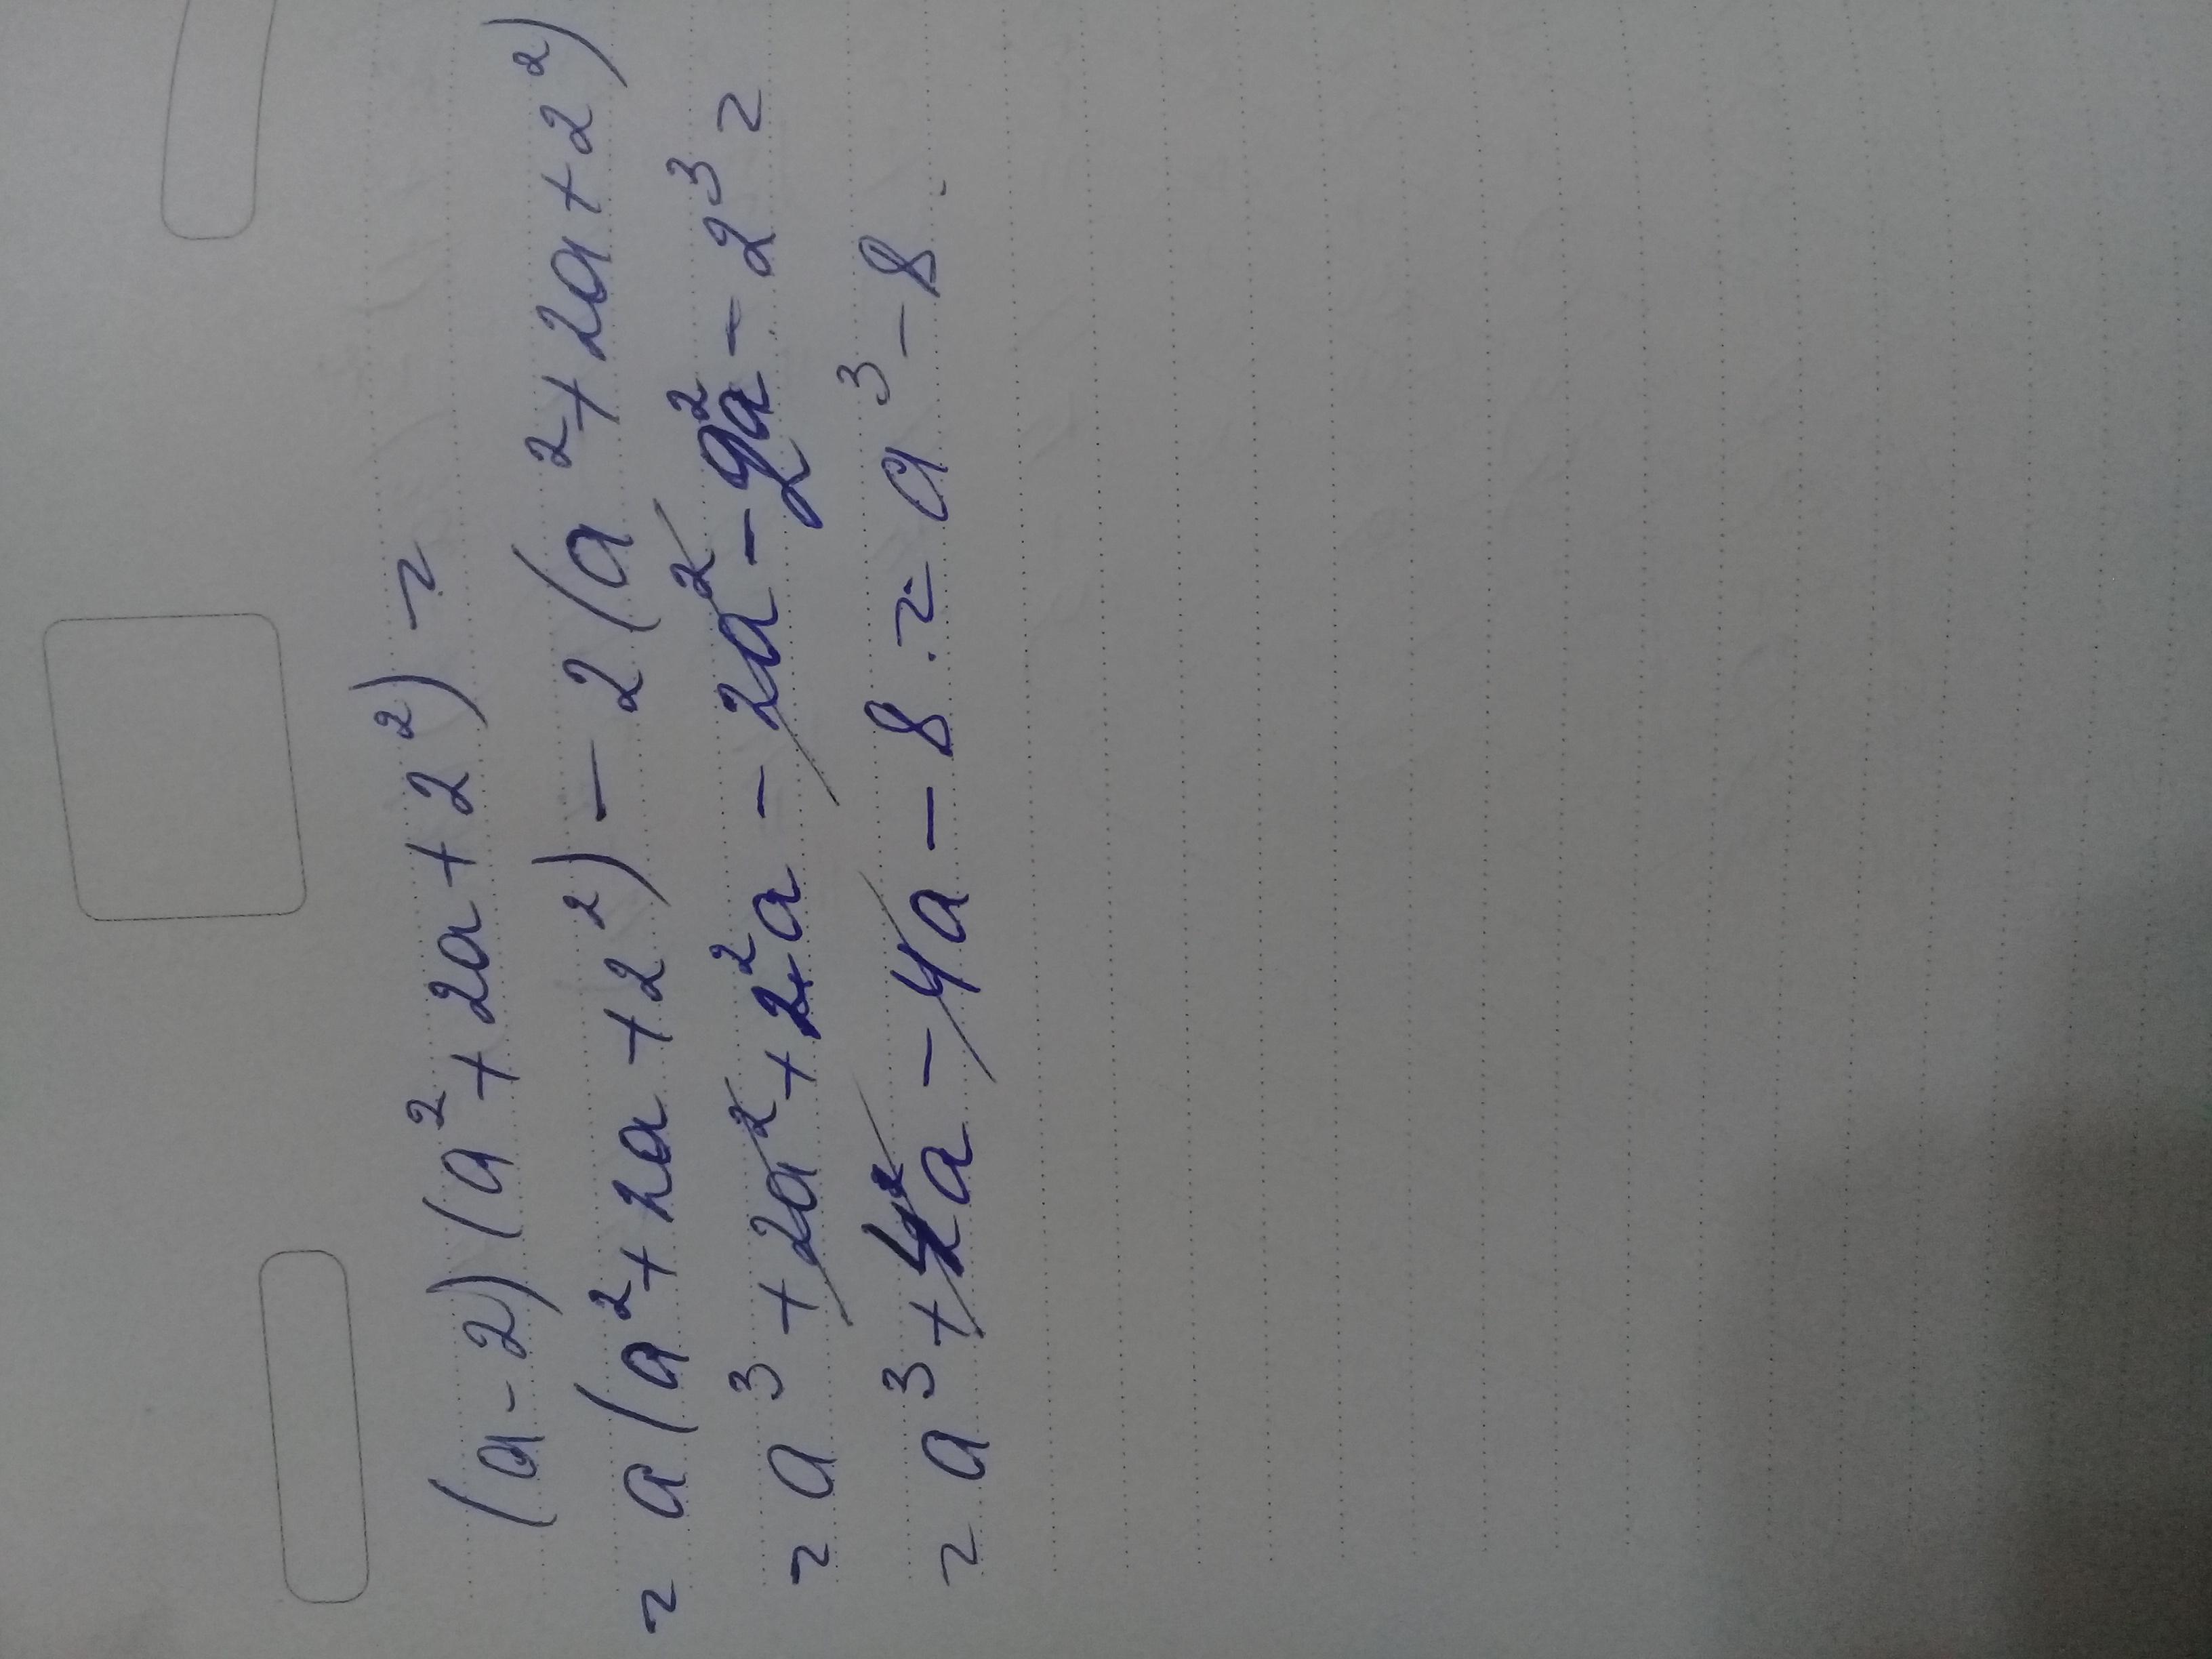 (a-2)(a²+2a+2²) =
= a(a²+2a+2²) - 2(a²+2a+2²)
= a³+2a²+2²a - 2a² - 2²a - 2³ =
= a³+4a - 4a - 8 = a³ - 8.